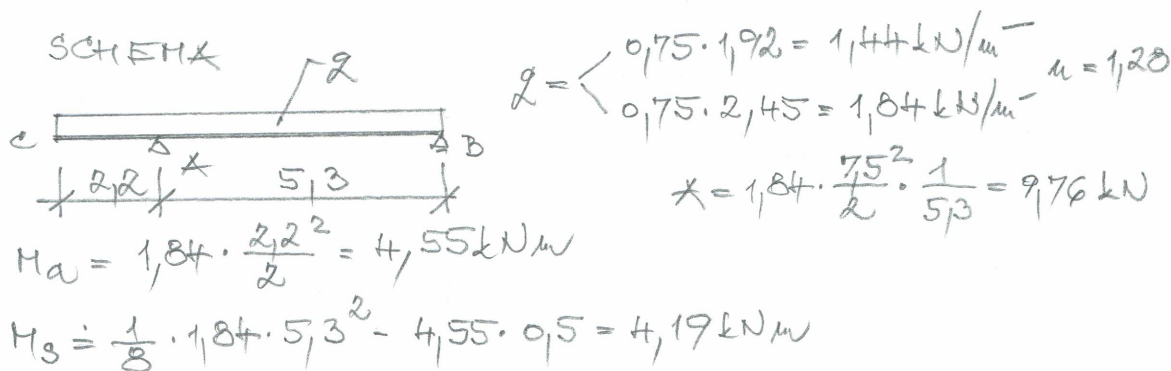 SCHEMA
q
q = < 0,75·1,92 = 1,44 kN/m¯
0,75·2,45 = 1,84 kN/m¯
n = 1,28
C
A
B
2,2
5,3
A = 1,84 · 7,5²/2 · 1/5,3 = 9,76 kN
Ma = 1,84 · 2,2²/2 = 4,55 kNm
Ms ≐ 1/8 · 1,84 · 5,3² - 4,55 · 0,5 = 4,19 kNm